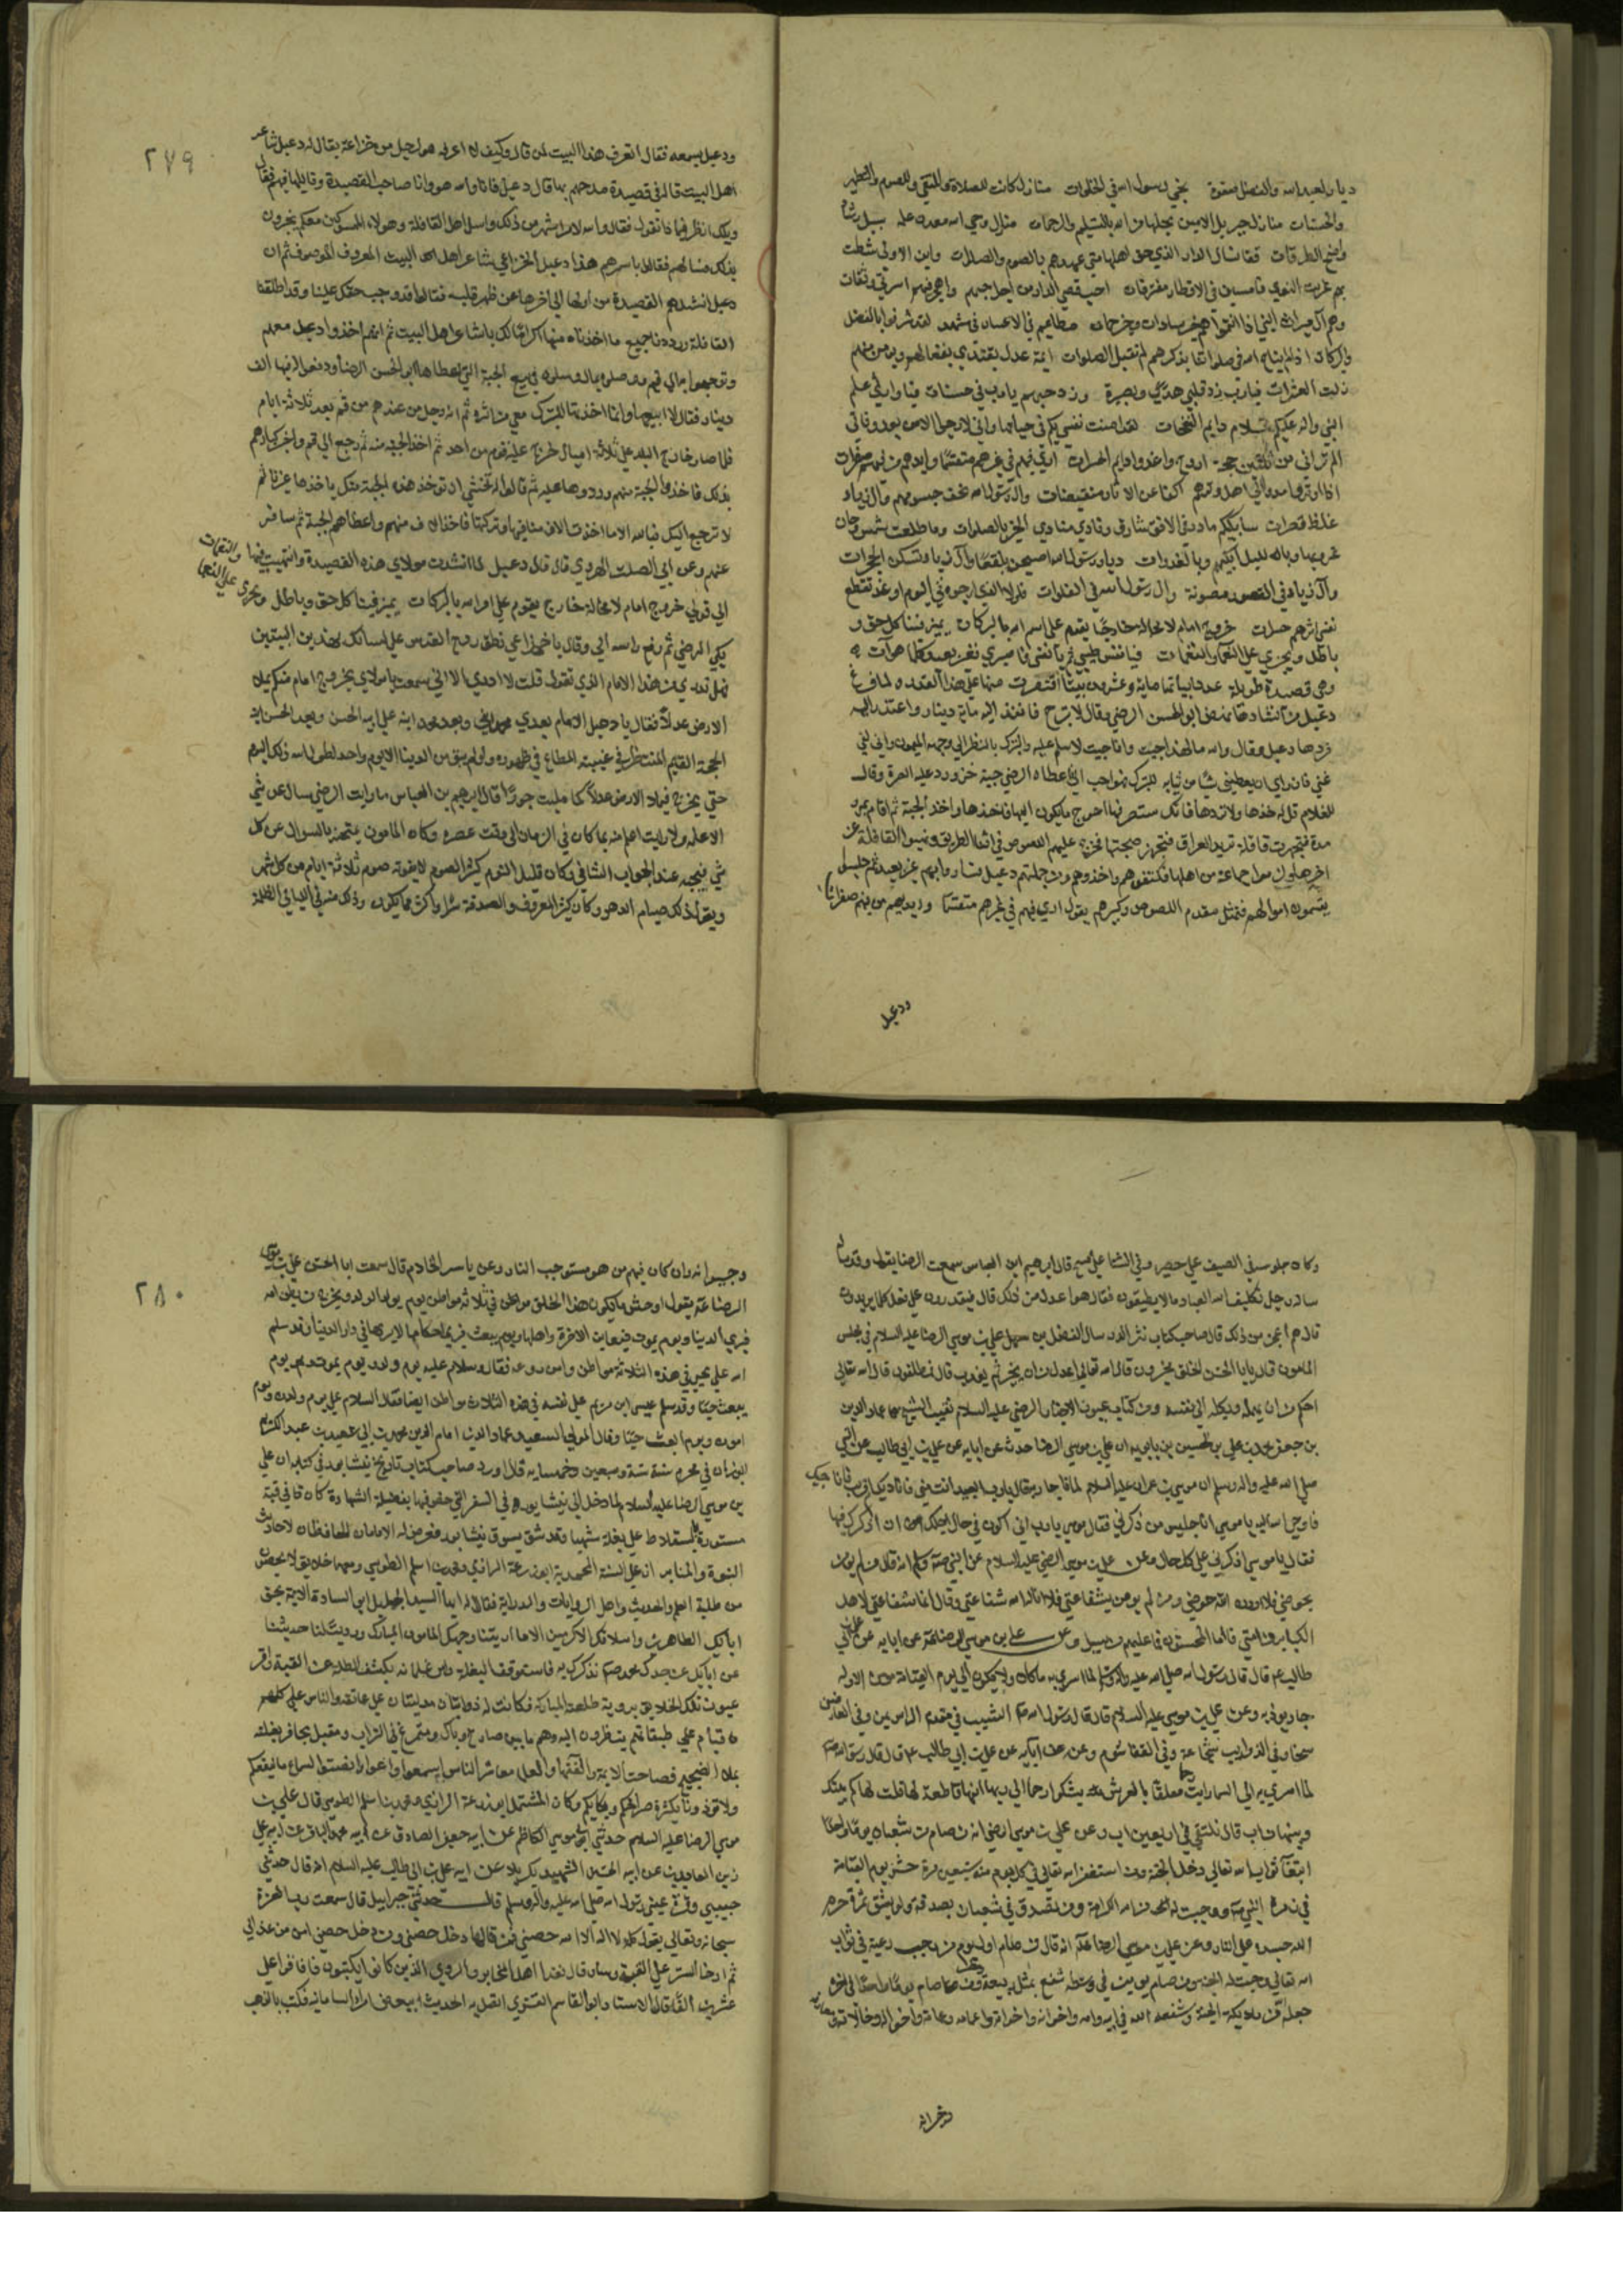 ديار لعبد الله والفضل صفوة نجي رسول الله في الخلوات منازل كانت للصلاة وللتقى وللصوم والتطهير
والحسنات منازل جبريل الامين يحلها من الله بالتسليم والرحمات منازل وحي الله معدن علمه سبيل رشاد
واضح الطرقات قفا نسال الدار الذي خف اهلها متى عهدهم بالصوم والصلوات واين الاولى شطت
بهم غربت النوى فامسين في الاقطار مفترقات احب قصي الدار من اجل حبهم واهجر فيهم اسرتي وثقات
وهم آل ميراث النبي اذا انتموا وهم خير سادات وخير حمات مطاعيم في الاعسار في مشهد لقد شرفوا بالفضل
والبركات اذا لم يناج الله في صلواتنا بذكرهم لم تقبل الصلوات ايمة عدل يقتدى بفعالهم ويومن منهم
زلت العثرات فيارب زد قلبي هدى وبصيرة وزد حبهم يارب في حسنات
النبي واله عليكم سلام دايم النفحات لقد امنت نفسي بكم في حياتها واني لارجوا الامن بعد وفاتي
الم تراني من ثلثين حجة اروح واغدوا دايم الحسرات ارى فيهم في غيرهم متقسما وايديهم من فيهم صفرات
اذا اوتروا مدوا الى اهل وترهم اكفا عن الاوتار منقبضات وال رسول الله نحف جسومهم وال زياد
غلظ قصرات سابكيهم ما ذر في الافق شارق ونادي منادي الخير بالصلوات وما طلعت شمس وحان
غروبها وبالليل ابكيهم وبالغدوات ديار رسول الله اصبحن بلقعا وآل زياد تسكن الحجرات
وآل زياد في القصور مصونة وال رسول الله في الفلوات فلولا الذي ارجوه في اليوم او غد تقطع
نفسي اثرهم حسرات خروج امام لا محالة خارج يقوم على اسم الله بالبركات يميز فينا كل حق و
باطل ويجزي على النعماء والنقمات فيا نفس طيبي ثم يا نفس فاصبري فغير بعيد كلما هو آت
وهي قصيدة طويلة عدد ابياتها ماية وعشرون بيتا اقتصرت منها على هذا القدر ولما فرغ
دعبل من انشادها نهض ابو الحسن الرضي وقال لا تبرح فانفذ اليه ماية دينار واعتذر اليه
فردها دعبل وقال والله ما لهذا جيت وانا جيت لاسلم عليه واتبرك بالنظر الى وجهه الميمون واني لفي
غني فان راي ان يعطيني شيا من ثيابه للتبرك فهو احب الي فاعطاه الرضي جبة خز ورد عليه الصرة وقال
للغلام قل له خذها ولا تردها فانك ستصرفها احوج ما يكون اليها فاخذها واخذ الجبة ثم اقام بمرو
مدة فتجهزت قافلة تريد العراق فتجهز صحبتها فخرج عليهم اللصوص في اثناء الطريق ونهبوا القافلة عن
اخرها ولزموا جماعة من اهلها فكتفوهم واخذوهم ومن جملتهم دعبل فساروا بهم غير بعيد ثم جلسوا
يقسمون اموالهم فتمثل مقدم اللصوص وكبيرهم يقول ارى فيهم في غيرهم متقسما وايديهم من فيهم صفرات
ودعبل
٢٧٩
ودعبل يسمعه فقال اتعرف هذا البيت لمن قال وكيف لا اعرفه هو لرجل من خزاعة يقال له دعبل شاعر
اهل البيت قاله في قصيدة مدحهم بها قال دعبل فانا والله هو وانا صاحب القصيدة وقايلها فيهم فقال
ويلك انظر فيما ذا تقول فقال والله لامر اشهر من ذلك واسال اهل القافلة وهولاء الممسوكين معكم يخبرون
بذلك فسالهم فقالوا باسرهم هذا دعبل الخزاعي شاعر اهل البيت المعروف الموصوف ثم ان
دعبل انشدهم القصيدة من اولها الى اخرها عن ظهر قلبه فقالوا قد وجب حقك علينا وقد اطلقنا
القافلة ورددنا جميع ما اخذناه منها اكراما لك يا شاعر اهل البيت ثم انهم اخذوا دعبل معهم
وتوجهوا به الى قم ووصلوه بمال وسالوه في بيع الجبة التي اعطاها ابو الحسن الرضا ودفعوا له فيها الف
دينار فقال لا ابيعها وانما اخذتها للتبرك معي من اثره ثم انه رحل من عندهم من قم بعد ثلاثة ايام
فلما صار خارج البلد على ثلاثة اميال خرج عليه قوم من احداثهم اخذوا الجبة منه ثم رجع الى قم واخبر كبارهم
بذلك فاخذوا الجبة منهم وردوها عليه ثم قالوا له نخشى ان توخذ هذه الجبة منك ياخذها غيرنا ثم
لا ترجع اليك فبالله الا ما اخذت الالف منا فيها وتركتها فاخذ الالف منهم واعطاهم الجبة ثم سافر
عنهم وعن ابي الصلت الهروي قال قال دعبل لما انشدت مولاي هذه القصيدة وانتهيت فيها
الى قولي خروج امام لا محالة خارج يقوم على اسم الله بالبركات يميز فينا كل حق وباطل ويجزى على النعما والنقمات
بكى الرضي ثم رفع راسه الي وقال يا خزاعي نطق روح القدس على لسانك بهذين البيتين
فهل تدري من هذا الامام الذي تقول قلت لا ادري الا اني سمعت يا مولاي بخروج امام منكم يملا
الارض عدلا فقال يا دعبل الامام بعدي محمد ابني وبعد محمد ابنه علي وبعد علي ابنه الحسن وبعد الحسن ابنه
الحجة القايم المنتظر في غيبته المطاع في ظهوره ولو لم يبق من الدنيا الا يوم واحد لطول الله ذلك اليوم
حتى يخرج فيملا الارض عدلا كما مليت جورا قال ابراهيم بن العباس ما رايت الرضي سال عن شي
الا علمه ولا رايت اعلم منه بما كان في الزمان الى وقت عصره وكان المامون يمتحنه بالسوال عن كل
شي فيجيبه عنه الجواب الشافي وكان قليل النوم كثير الصوم لا يفوته صوم ثلاثة ايام من كل شهر
ويقول ذلك صيام الدهر وكان كثير المعروف والصدقة سرا واكثر ما يكون ذلك منه في الليالي المظلمة
وكان جلوسه في الصيف على حصير وفي الشتا على مسح قال ابراهيم ابن العباس سمعت الرضا يقول وقد
ساله رجل تكليف الله العباد ما لا يطيقون فقال هو اعدل من ذلك قال فيقدرون على فعل كلما يريدون
قال هم اعجز من ذلك قال صاحب كتاب نثر الدر سال الفضل بن سهل علي بن موسى الرضا عليه السلام في مجلس
المامون قال يا ابا الحسن الخلق يجبرون قال الله تعالى اعدل من ان يجبر ثم يعذب قال فمطلقون قال الله تعالى
احكم من ان يهمل عبده ويكله الى نفسه ومن كتاب عيون الاخبار الرضي عليه السلام تصنيف الشيخ عماد الدين
بن جعفر محمد بن علي بن الحسين بن بابويه ان علي بن موسى الرضا حدث عن ابايه عن علي بن ابي طالب عن النبي
صلى الله عليه واله وسلم ان موسى بن عمران عليه السلام لما ناجا ربه قال يارب ابعيد انت مني فاناديك ام قريب فاناجيك
فاوحى الله اليه يا موسى انا جليس من ذكرني فقال موسى يارب اني اكون في حال اجلك ان اذكرك فيها
فقال يا موسى اذكرني على كل حال وعن علي بن موسى الرضي عليه السلام عن النبي صم انه قال من لم يومن
بحوضي فلا اورده الله حوضي ومن لم يومن بشفاعتي فلا اناله الله شفاعتي وقال انما شفاعتي لاهل
الكباير من امتي فاما المحسنون فما عليهم من سبيل وعن علي بن موسى الرضا عن ابايه عن علي بن ابي
طالب عم قال قال رسول الله صلى الله عليه واله وسلم لما اسري به ما كان ولا يكون الى يوم القيامة مومن الا وله
جار يوذيه وعن علي بن موسى عليه السلام قال قال رسول الله صم الشيب في مقدم الراس يمن وفي العارضين
سخا وفي الذوايب شجاعة وفي القفا شوم وعنه عن ابايه عن علي بن ابي طالب عم قال قال رسول الله صم
لما اسري بي الى السما رايت رحما معلقا بالعرش يشكوا رحما الى ربها انها قاطعة لها قلت لها كم بينك
وبينها من اب قال نلتقي في اربعين اب وعن علي بن موسى الرضي انه من صام من شعبان يوما واحدا
ابتغا ثواب الله تعالى دخل الجنة ومن استغفر الله تعالى في كل يوم منه سبعين مرة حشر يوم القيامة
في زمرة النبي صم ووجبت له من الله الكرامة ومن تصدق في شعبان بصدقة ولو بشق تمرة حرم
الله جسده على النار وعن علي بن موسى الرضا انه قال من صام اول يوم من رجب رغبة في ثواب
الله تعالى وجبت له الجنة ومن صام يوم من في وسطه شفع بمثل ربيعة ومضر ومن صام يوما في اخره
جعله من ملايكة الجنة وشفعه الله في ابيه وامه واخوانه واخواته واعمامه وعماته واخواله وخالاته
وجيرانه
٢٨٠
وجيرانه وان كان فيهم من هو مستوجب النار وعن ياسر الخادم قال سمعت ابا الحسن علي بن موسى
الرضا عم يقول اوحش ما يكون هذا الخلق في ثلاثة مواطن يوم يولد المولود ويخرج من بطن امه
فيرى الدنيا ويوم يموت فيعاين الاخرة واهلها ويوم يبعث فيرى احكاما لم يرها في دار الدنيا وقد سلم
الله على يحيى في هذه الثلاثة مواطن وامن روعه فقال وسلام عليه يوم ولد ويوم يموت ويوم
يبعث حيا وقد سلم عيسى ابن مريم على نفسه في هذه الثلاث مواطن ايضا فقال السلام علي يوم ولدت ويوم
اموت ويوم ابعث حيا وقال المولى السعيد عماد الدين امام الدين محمد بن ابي سعيد بن عبد الكريم
الوزان في محرم سنة ستة وسبعين وخمسمايه قال اورد صاحب كتاب تاريخ نيشابور في كتابه ان علي
بن موسى الرضا عليه السلام لما دخل الى نيشابور في السفرة التي خص فيها بفضيلة الشهادة كان في قبة
مستورة بالسقلاط على بغلة شهبا وقد شق سوق نيشابور فعرض له الامامان الحافظان لاحاديث
النبوة والمثابران على السنة المحمدية ابو زرعة الرازي ومحمد بن اسلم الطوسي ومعهما خلايق لا يحصون
من طلبة العلم والحديث واهل الروايات والدراية فقالا له ايها السيد الجليل ابن السادة الايمة بحق
ابايك الطاهرين واسلافك الاكرمين الا ما اريتنا وجهك المامون المبارك ورويت لنا حديثنا
عن ابايك عن جدك محمد صم نذكرك به فاستوقف البغلة وامر غلمانه بكشف المظلة عن القبة واقر
عيون تلك الخلايق بروية طلعته المباركة فكانت له ذوابتان مدليتان على عاتقه والناس على كلهم
قيام على طبقاتهم ينظرون اليه وهم ما بين صارخ وباك ومتمرغ في التراب ومقبل لحافر بغلته
وعلا الضجيج فصاحت الايمة والفقها والعلما معاشر الناس اسمعوا وعوا وانصتوا لسماع ما ينفعكم
ولا توذونا بكثرة صراخكم وبكايكم وكان المستملي ابو زرعة الرازي ومحمد بن اسلم الطوسي قال علي بن
موسى الرضا عليه السلام حدثني ابي موسى الكاظم عن ابيه جعفر الصادق عن ابيه محمد الباقر عن ابيه علي
زين العابدين عن ابيه الحسين الشهيد بكربلا عن ابيه علي بن ابي طالب عليه السلام انه قال حدثني
حبيبي وقرة عيني رسول الله صلى الله عليه واله وسلم قال حدثني جبرايل قال سمعت رب العزة
سبحانه وتعالى يقول كلمة لا اله الا الله حصني فمن قالها دخل حصني ومن دخل حصني امن من عذابي
ثم ارخا الستر على القبة وسار قال فعدوا اهل المحابر والدوي الذين كانوا يكتبون فانافوا على
عشرين الفا قال الاستاد ابو القاسم القشيري اتصل هذا الحديث ببعض امراء السامانيه فكتبه بالذهب